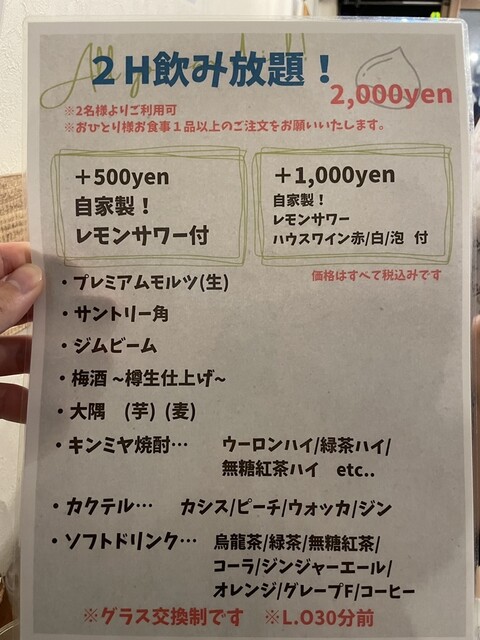 All you can drink!
2H飲み放題！
2,000yen
※2名様よりご利用可
※おひとり様お食事1品以上のご注文をお願いいたします。
＋500yen
自家製！
レモンサワー付
＋1,000yen
自家製！
レモンサワー
ハウスワイン赤/白/泡 付
価格はすべて税込みです
・プレミアムモルツ(生)
・サントリー角
・ジムビーム
・梅酒 ~樽生仕上げ~
・大隅 (芋) (麦)
・キンミヤ焼酎… ウーロンハイ/緑茶ハイ/
無糖紅茶ハイ etc..
・カクテル… カシス/ピーチ/ウォッカ/ジン
・ソフトドリンク… 烏龍茶/緑茶/無糖紅茶/
コーラ/ジンジャーエール/
オレンジ/グレープF/コーヒー
※グラス交換制です ※L.O30分前